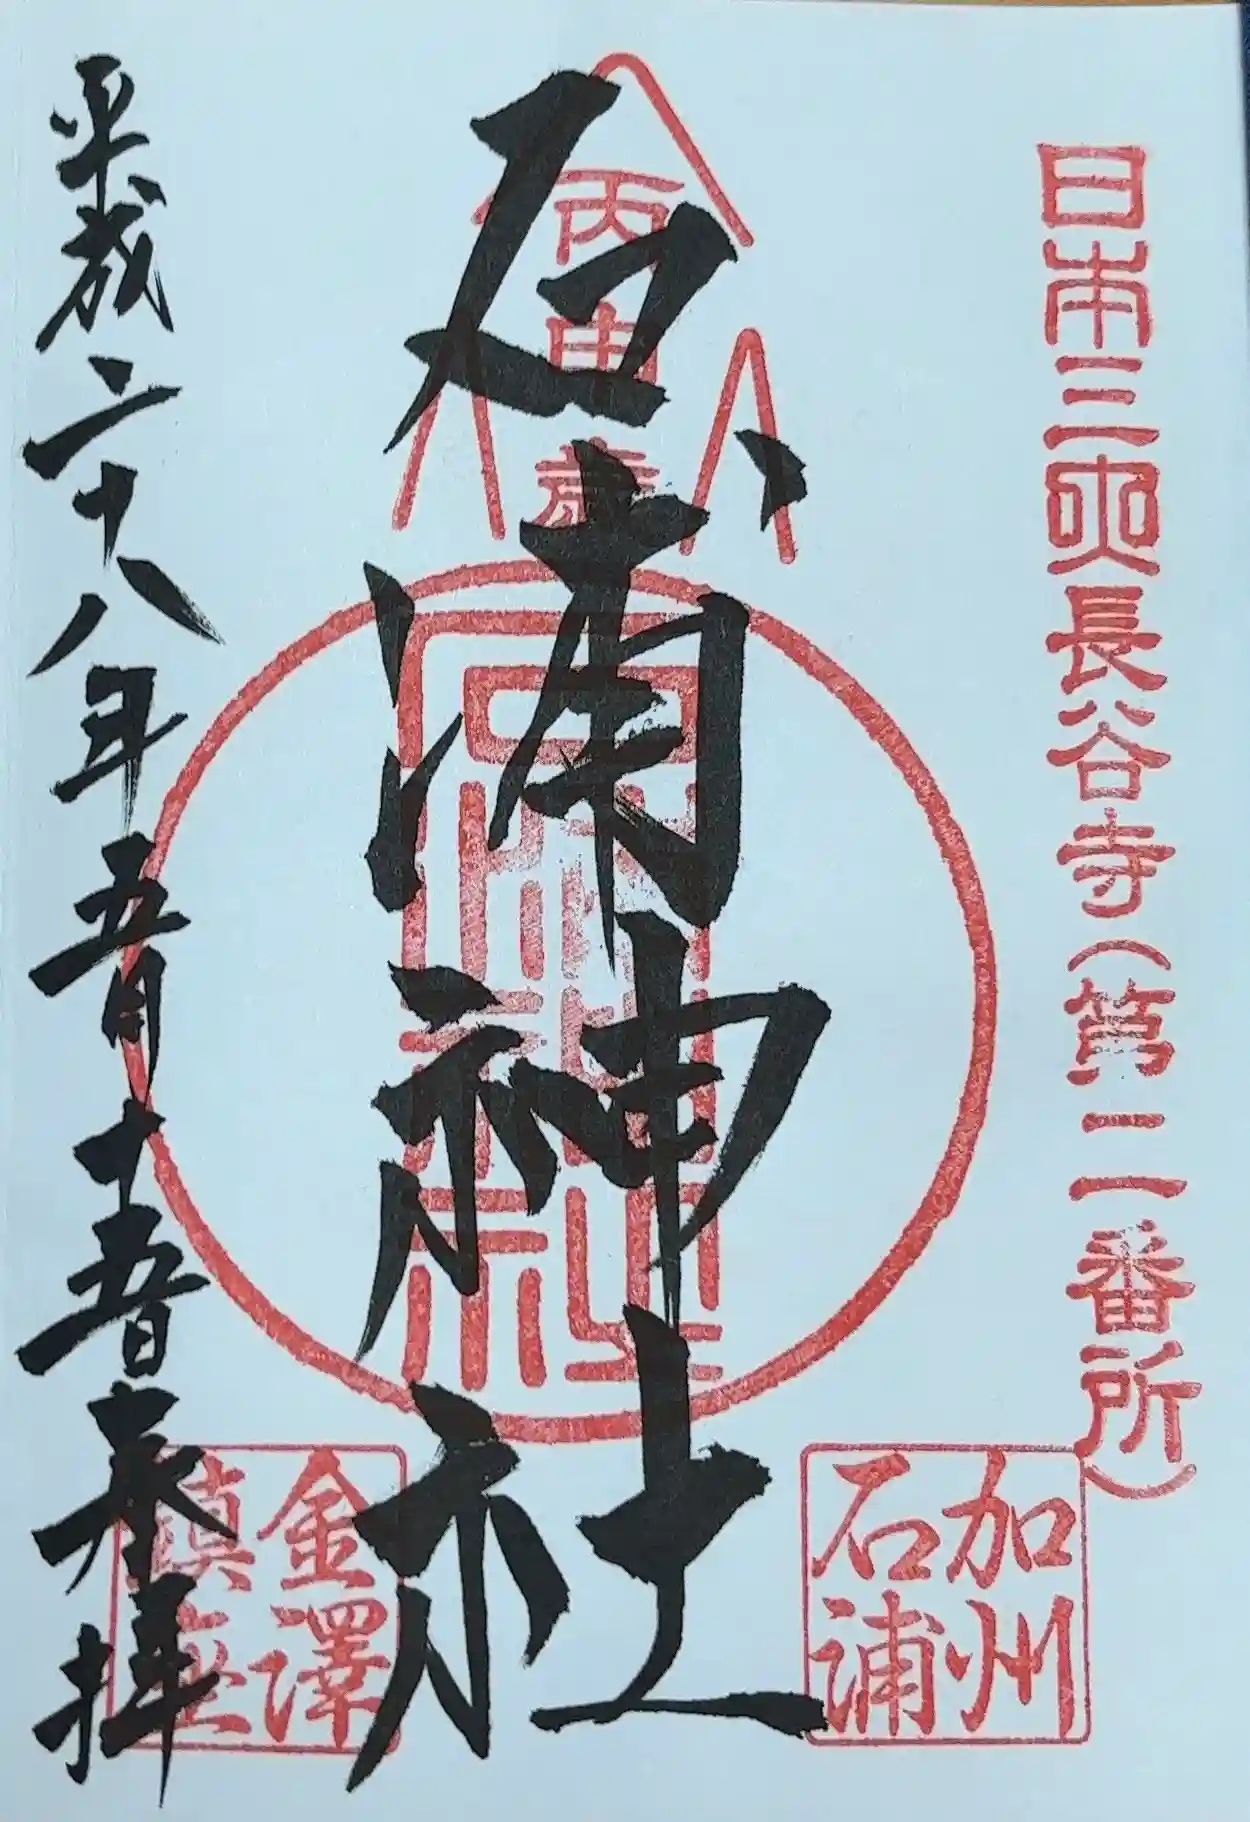 日本三大長谷寺(第二番所)
加州
石浦
丙申歳
石浦神社
石浦神社
金澤
鎮座
平成二十八年五月十五日奉拝